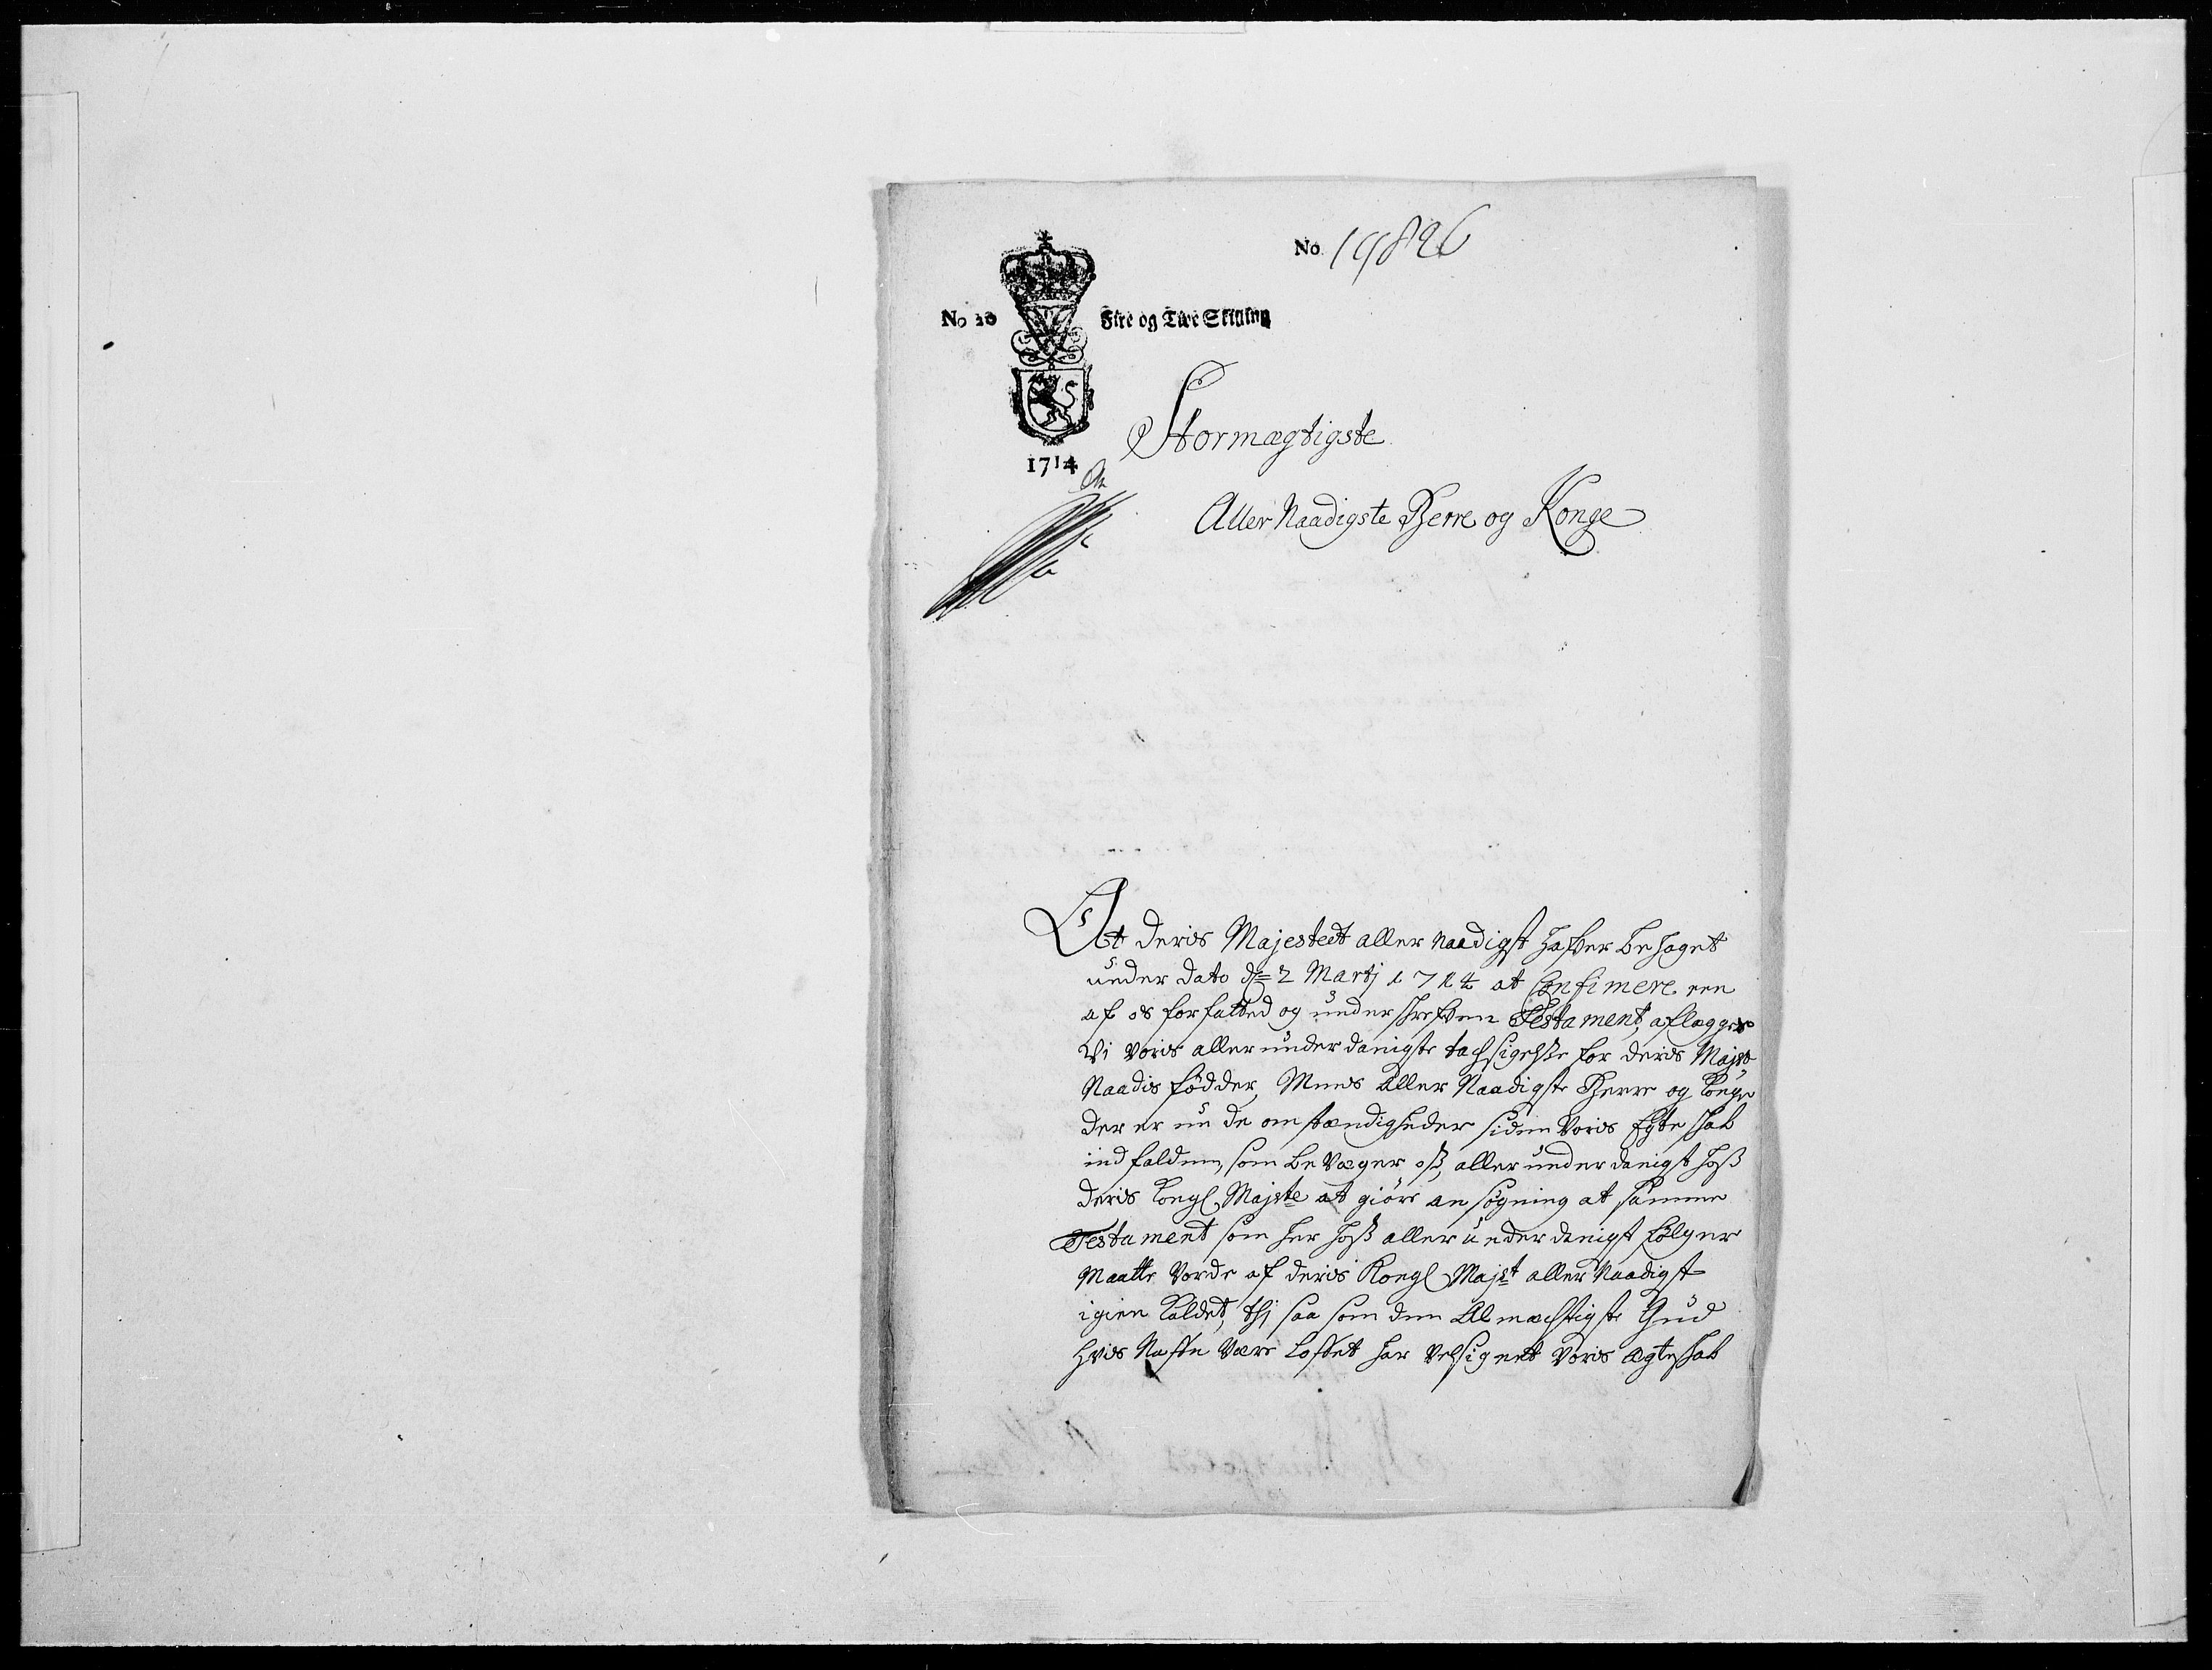 No 19826
No 20 Fire og Tive Skilling
1714
Stormægtigste
Aller Naadigste Herre og Konge
At Deris Majestedt aller naadigst hafver behaget
under dato d= 2 Martj 1714 at Confimere een
af os forfatted og underschrefven Testament, aflægger
Vi Voris aller underdanigste tachsigelsse for deris Mayts
Naadis fødder, Mens Aller Naadigste Herre og Konge
der er nu de omstændigheder siden Voris Egteschab
indfalden, som bevæger oss, aller underdanigst hoss
deris Kongl Majste at giøre ansøgning at samme
Testament som her hoss aller underdanigst følger
Maatte Vorde af deris Kongl Majst aller Naadigst
igien kaldet, thj saa som den Almæchtigste Gud
hvis Nafn være lofvet har Velsignet Voris ægteschab